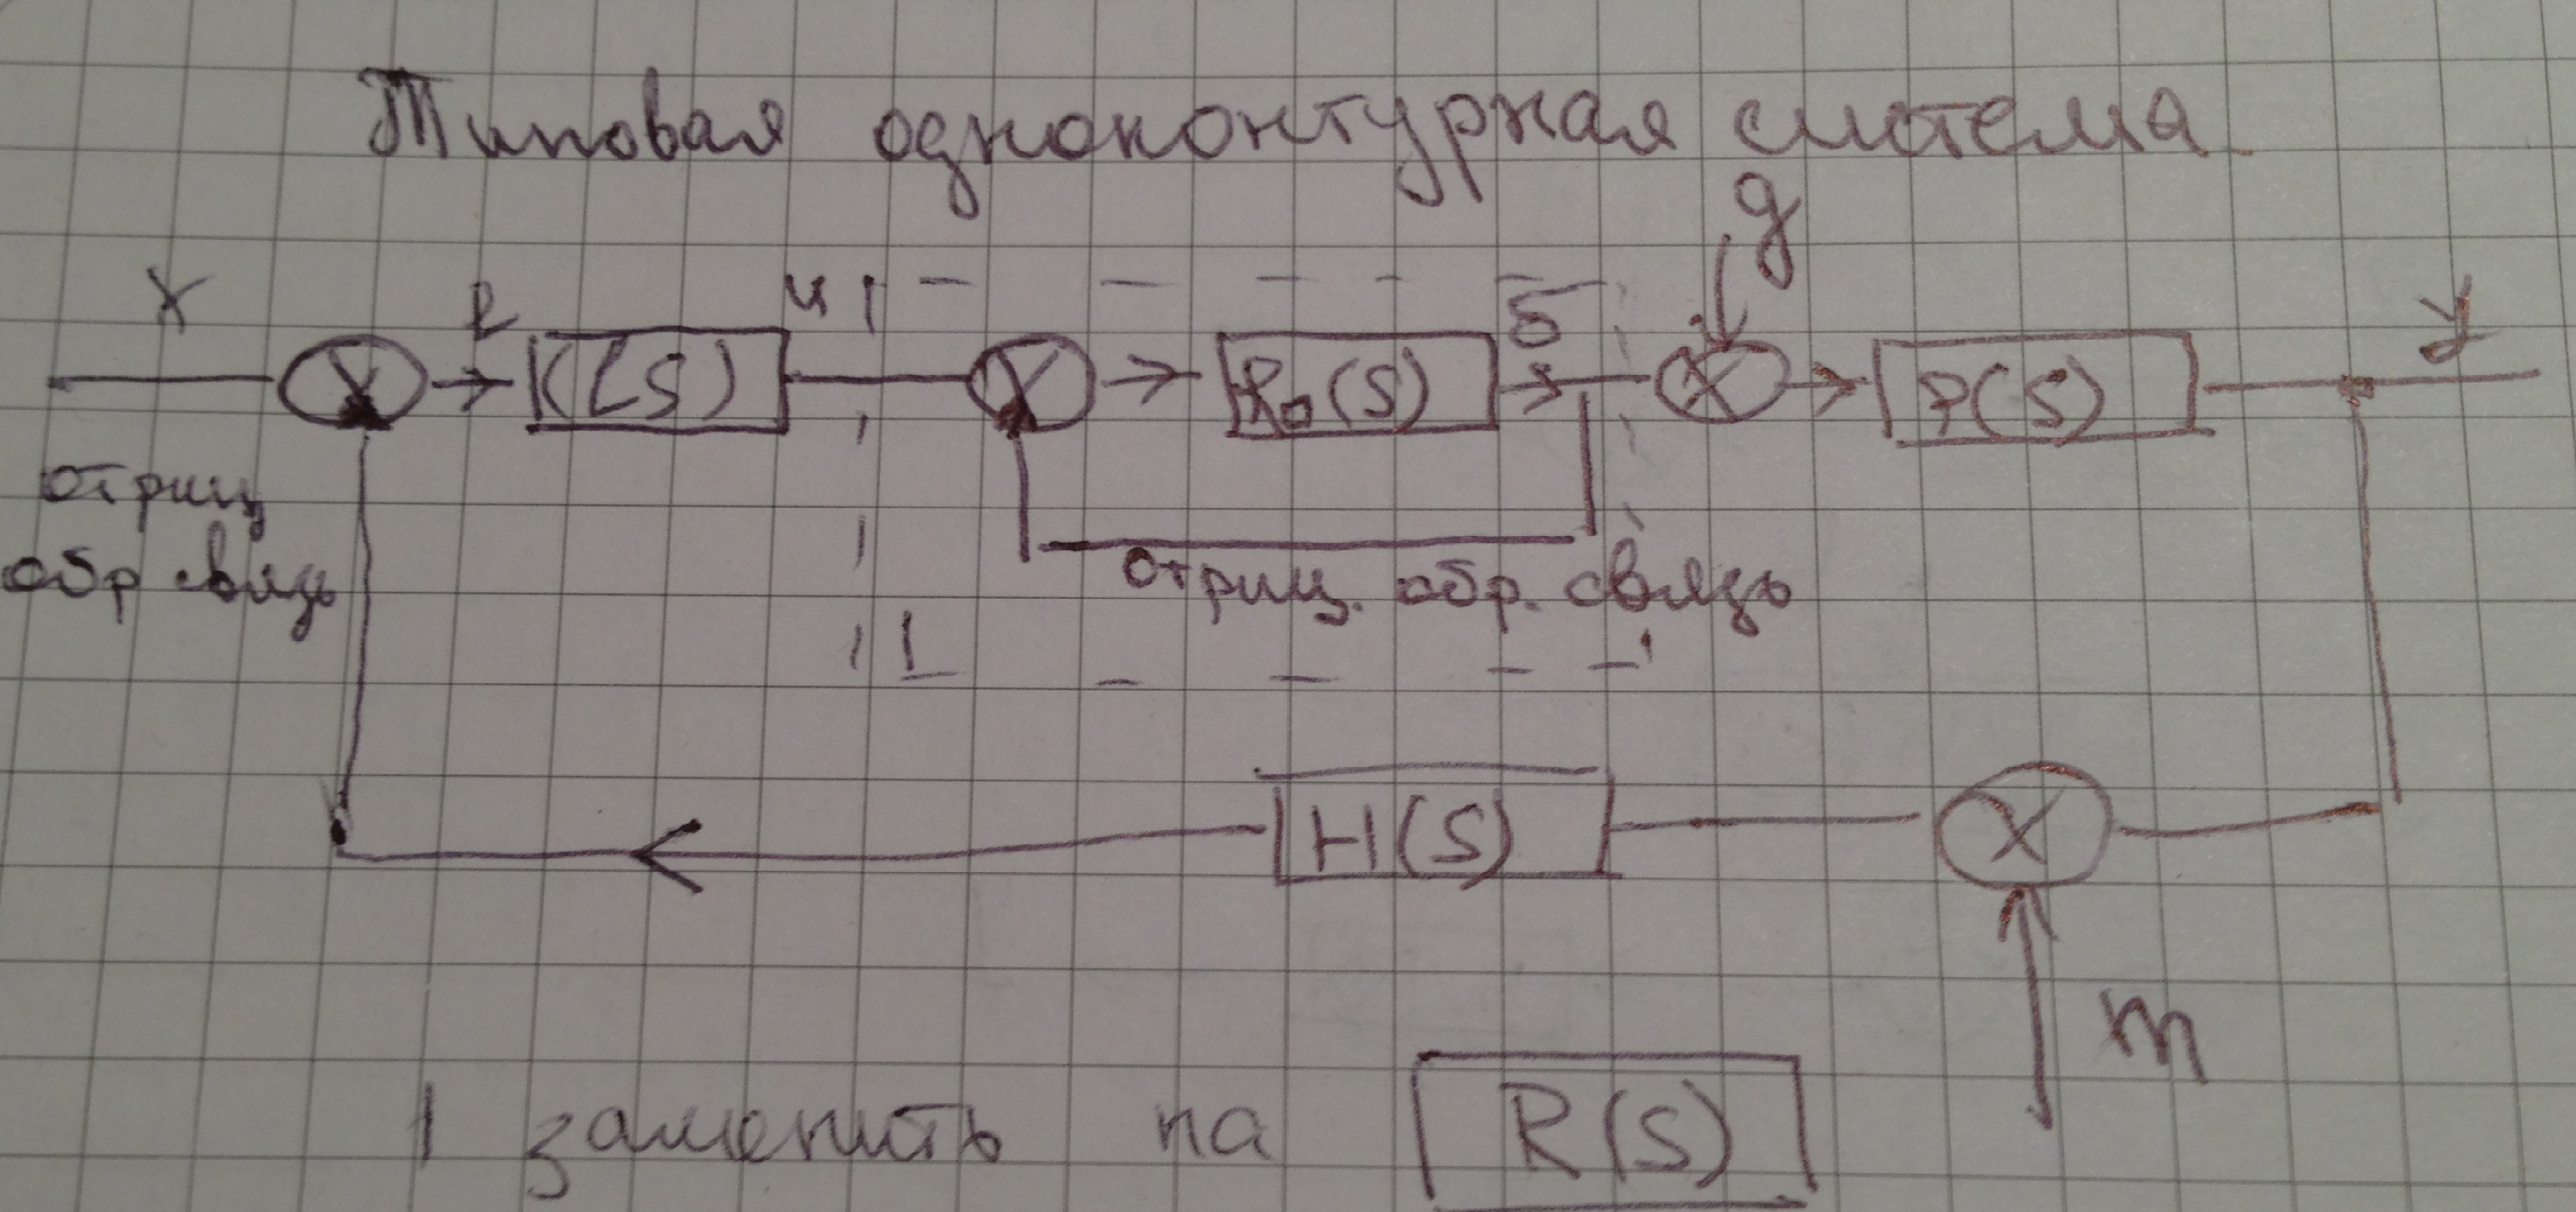 Типовая одноконтурная система
g
x e K(s) u R₀(s) δ P(s) y
отриц
обр связь
отриц. обр. связь
1
H(s)
m
1 заменить на R(s)